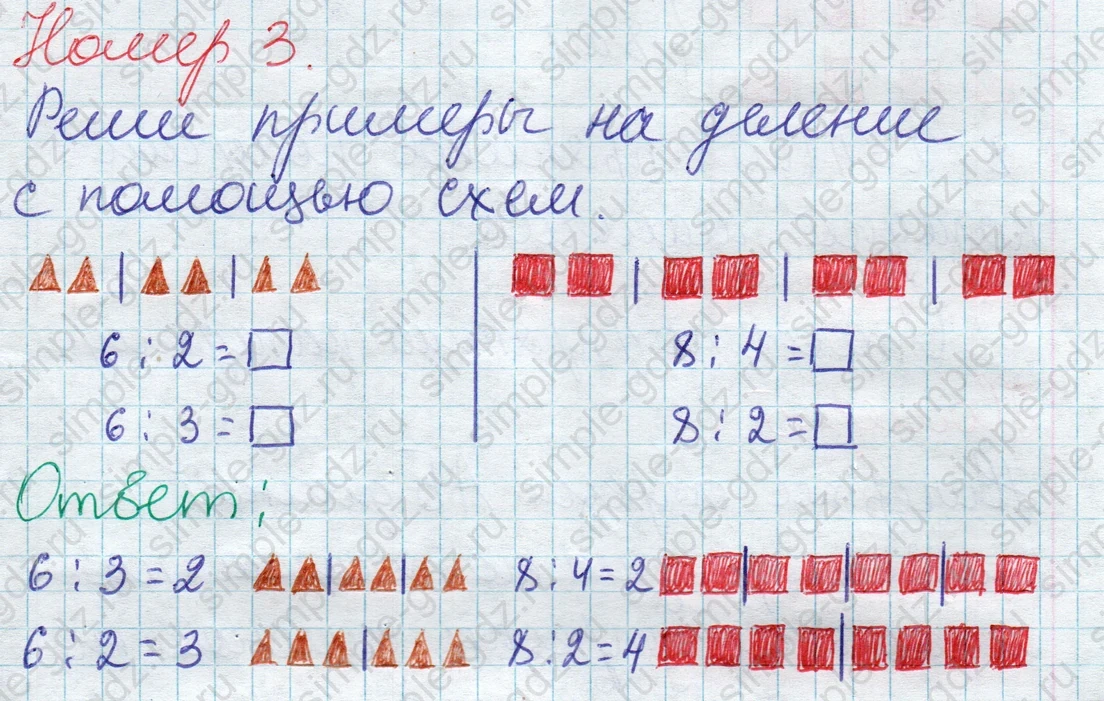 Номер 3.
Реши примеры на деление
с помощью схем.
6 : 2 = □
8 : 4 = □
6 : 3 = □
8 : 2 = □
Ответ:
6 : 3 = 2
8 : 4 = 2
6 : 2 = 3
8 : 2 = 4
simple-gdz.ru